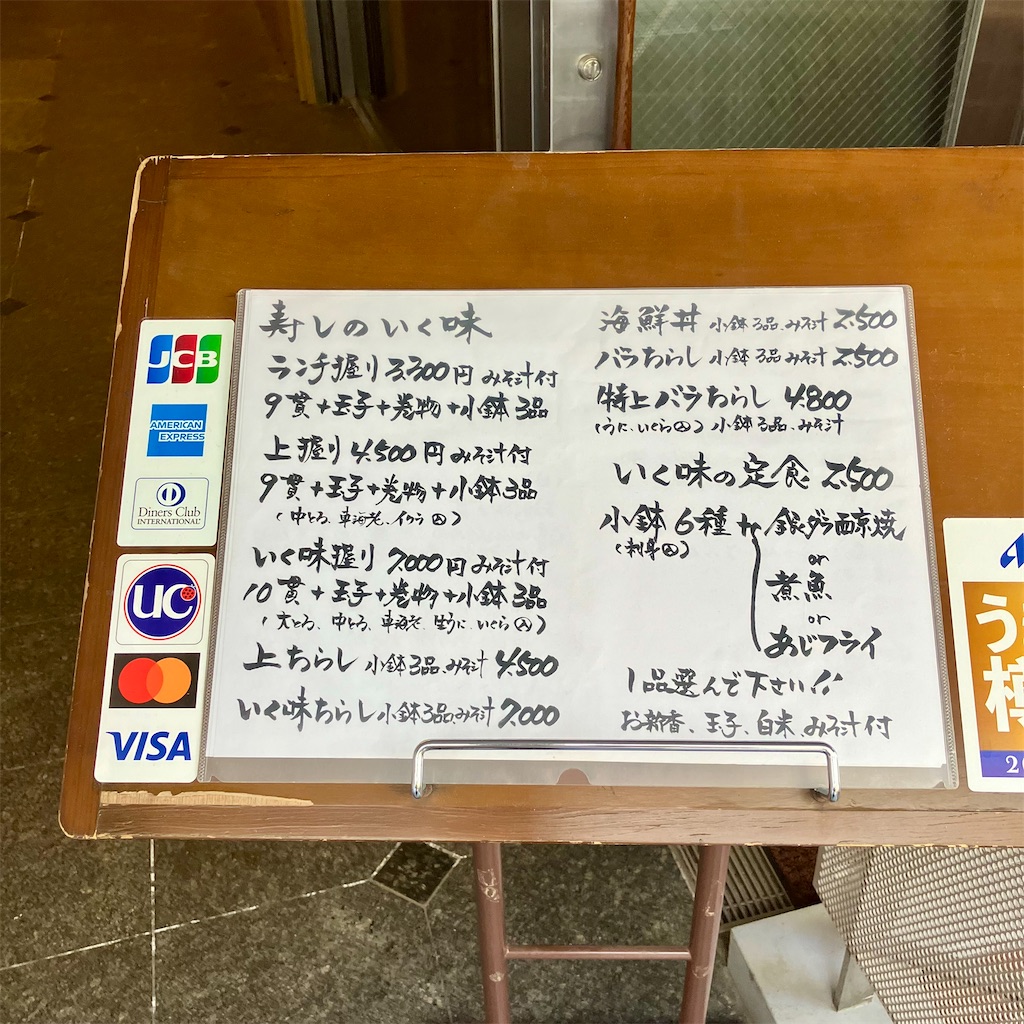 寿しのいく味
ランチ握り 3.300円 みそ汁付
9貫+玉子+巻物+小鉢3品
上握り 4.500円 みそ汁付
9貫+玉子+巻物+小鉢3品
(中とろ、車海老、イクラ入)
いく味握り 7.000円 みそ汁付
10貫+玉子+巻物+小鉢3品
(大とろ、中とろ、車海老、生うに、いくら入)
上ちらし 小鉢3品、みそ汁 4.500
いく味ちらし 小鉢3品、みそ汁 7.000
海鮮丼 小鉢3品、みそ汁 2.500
バラちらし 小鉢3品 みそ汁 2.500
特上バラちらし 4.800
(うに、いくら入) 小鉢3品、みそ汁
いく味の定食 2.500
小鉢6種 + 銀ダラ西京焼
(刺身入)
or
煮魚
or
あじフライ
1品選んで下さい!!
お新香、玉子、白米、みそ汁付
JCB
AMERICAN
EXPRESS
Diners Club
INTERNATIONAL
UC
VISA
う
樽
2